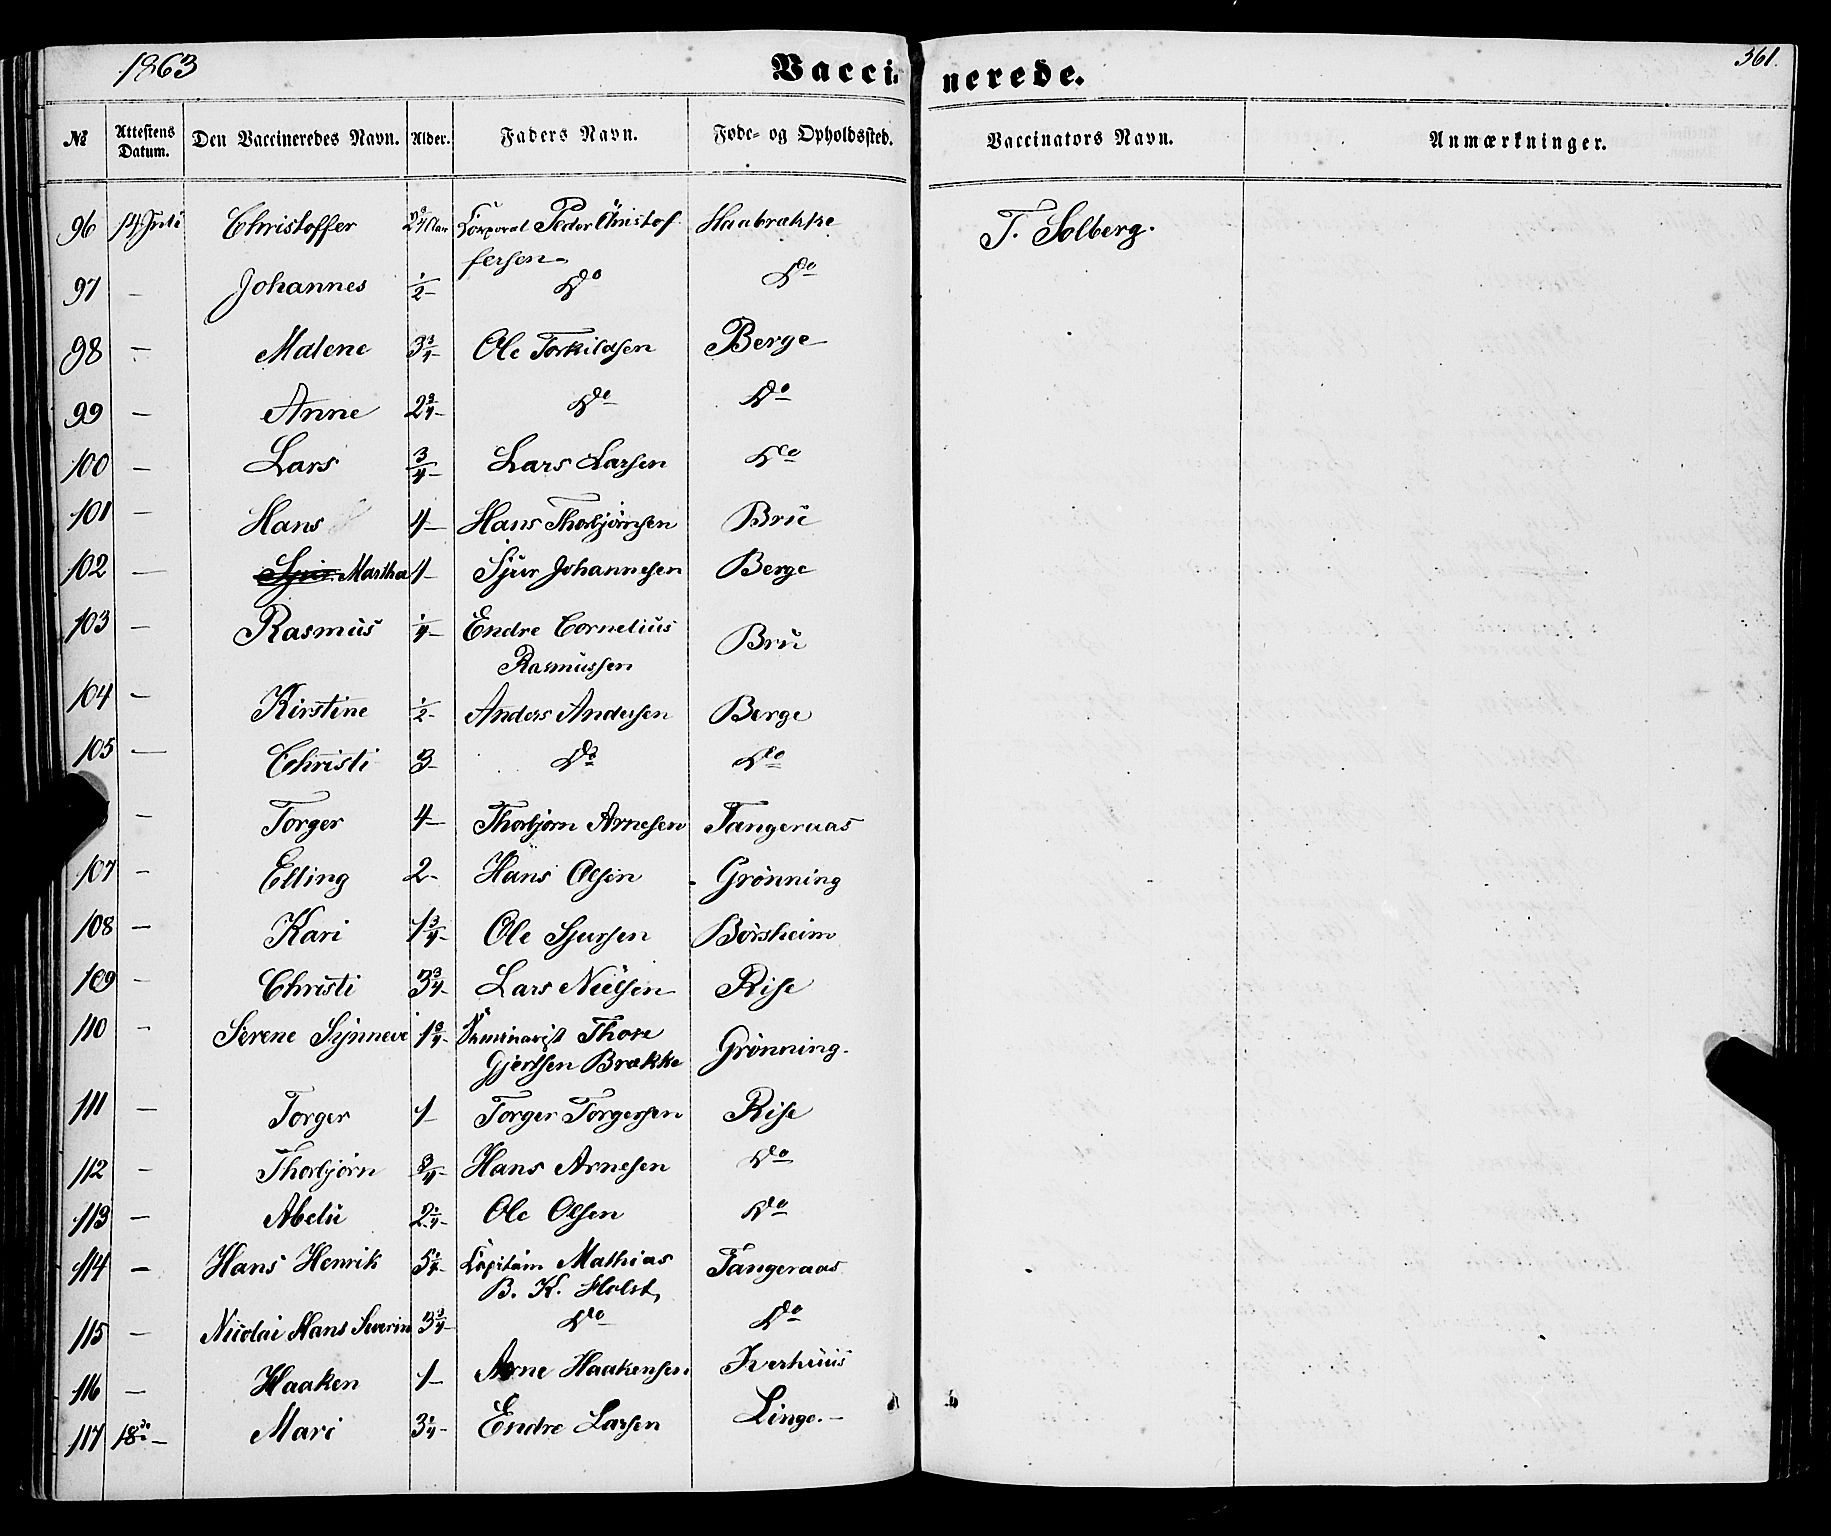 1863 Vaccinerede. 361.
№ Attestens Datum. Den Vaccineredes Navn. Alder. Faders Navn. Føde- og Opholdssted. Vaccinators Navn. Anmærkninger.
96 14 Juli Christoffer 2¾ Korporal Peder Christof- Haabrække T. Solberg.
fersen
97 — Johannes ½ Do Do
98 — Malene 3¾ Ole Torkildsen Berge
99 — Anne 2¾ Do Do
100 — Lars ¾ Lars Larsen Do
101 — Hans 4 Hans Thorbjørnsen Brü
102 — Sjur Martha 1 Sjur Johannesen Berge
103 — Rasmüs ¼ Endre Cornelius Brü
Rasmüssen
104 — Kirstine ½ Anders Andersen Berge
105 — Christi 3 Do Do
— Torger 4 Thorbjørn Arnesen Tangeraas
107 — Elling 2 Hans Olsen Grønning
108 — Kari 1¾ Ole Sjursen Børsheim
109 — Christi 3¾ Lars Nielsen Rise
110 — Serene Synneve 1¾ Seminarist Thore Grønning.
Gjertsen Brække
111 — Torger 1 Torger Torgersen Rise
112 — Thorbjørn ¾ Hans Arnesen Do
113 — Abelü 2¼ Ole Olsen Do
114 — Hans Henrik 5¼ Kapitain Mathias Tangeraas
B. K. Holst
115 — Nicolai Hans Severin 3¾ Do Do
116 — Haaken 1 Arne Haakensen Iverhüüs
117 18de — Mari 3¼ Endre Larsen Linge. —